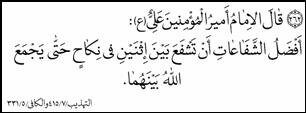 قالَ الإمامُ أميرُ المُؤْمِنينَ عَلِيٌّ (ع):
أَفْضَلُ الشَّفاعاتِ أَنْ تَشْفَعَ بَيْنَ إِثْنَيْنِ فِى نِكاحٍ حَتّىٰ يَجْمَعَ
اللهُ بَيْنَهُما.
التهذيب/٧/٤١٥ والكافى/٥/٣٣١